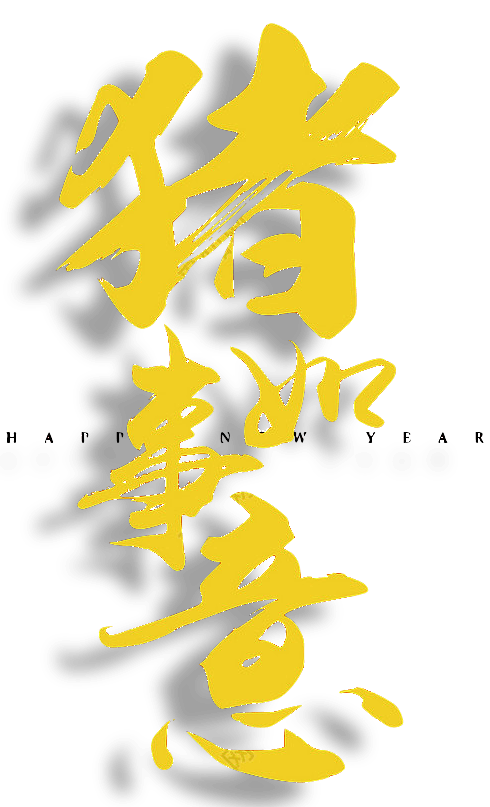 猪
事如
意
HAPPY NEW YEAR